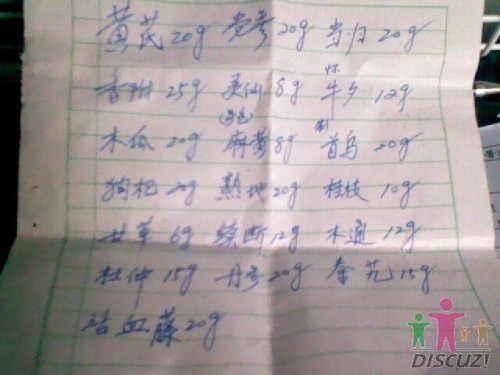 黄芪20g 党参20g 当归20g
香附25g 灵仙8g 怀牛夕12g
木瓜20g 麻黄8g 制首乌20g
狗杞20g 熟地20g 桂枝10g
甘草6g 续断12g 木通12g
杜仲15g 丹参20g 秦艽15g
活血藤20g
DISCUZ!